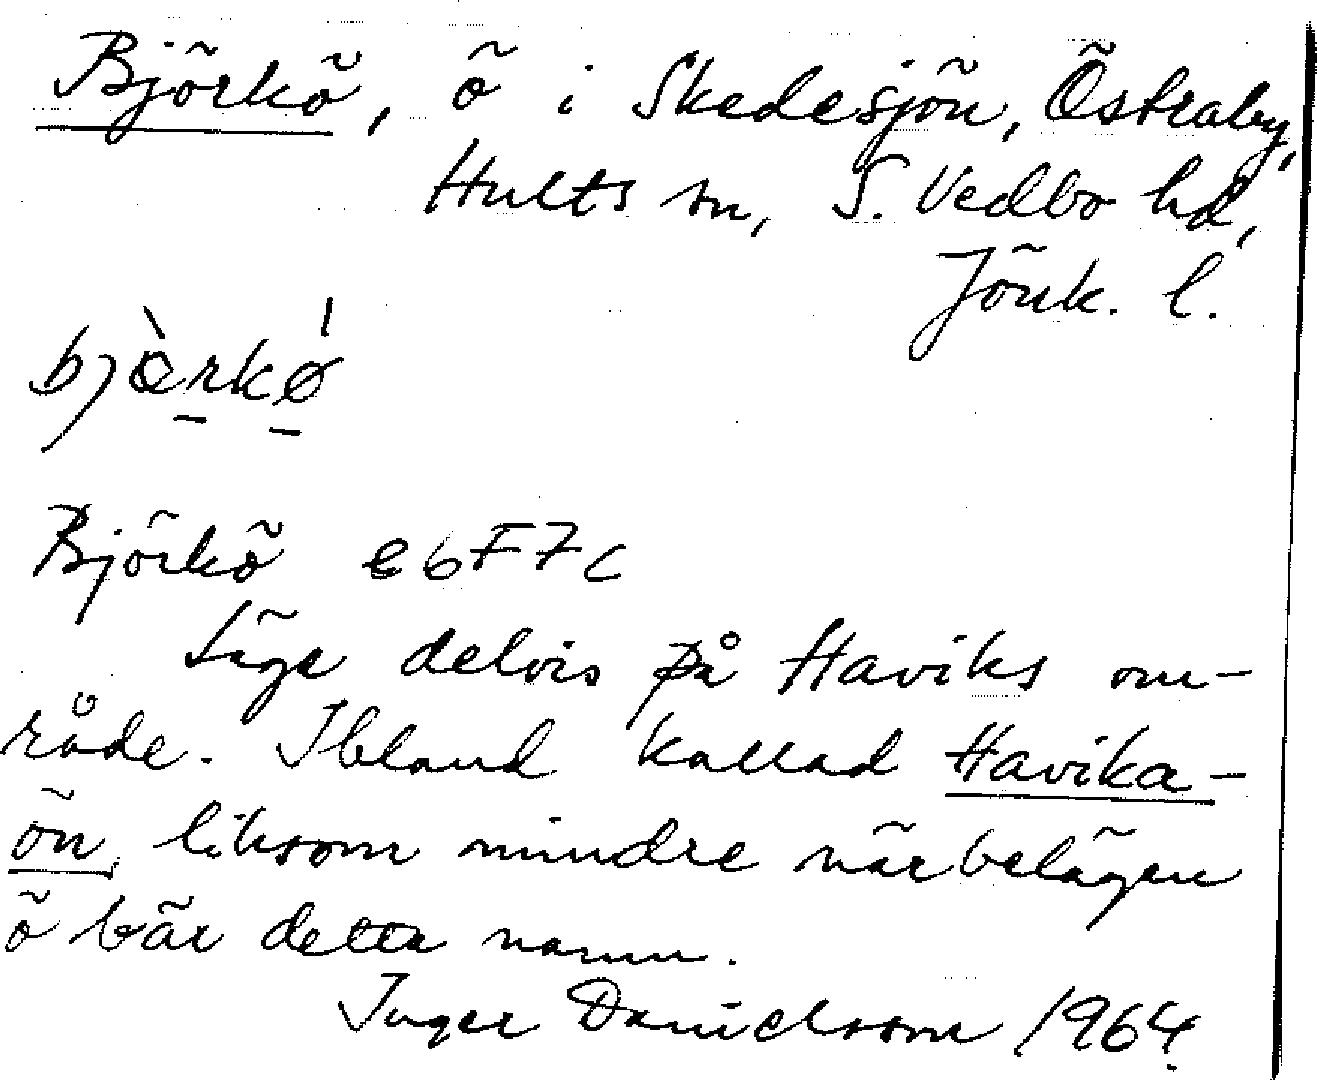 Björkö, ö i Skedesjön, Östraby,
Hults sn, S. Vedbo hd,
Jönk. l.
bjæ̀rkǿ
Björkö e6F7c
Läge delvis på Haviks om-
råde. Ibland kallad Havika-
ön, liksom mindre närbelägen
ö bär detta namn.
Inger Danielsson 1964.